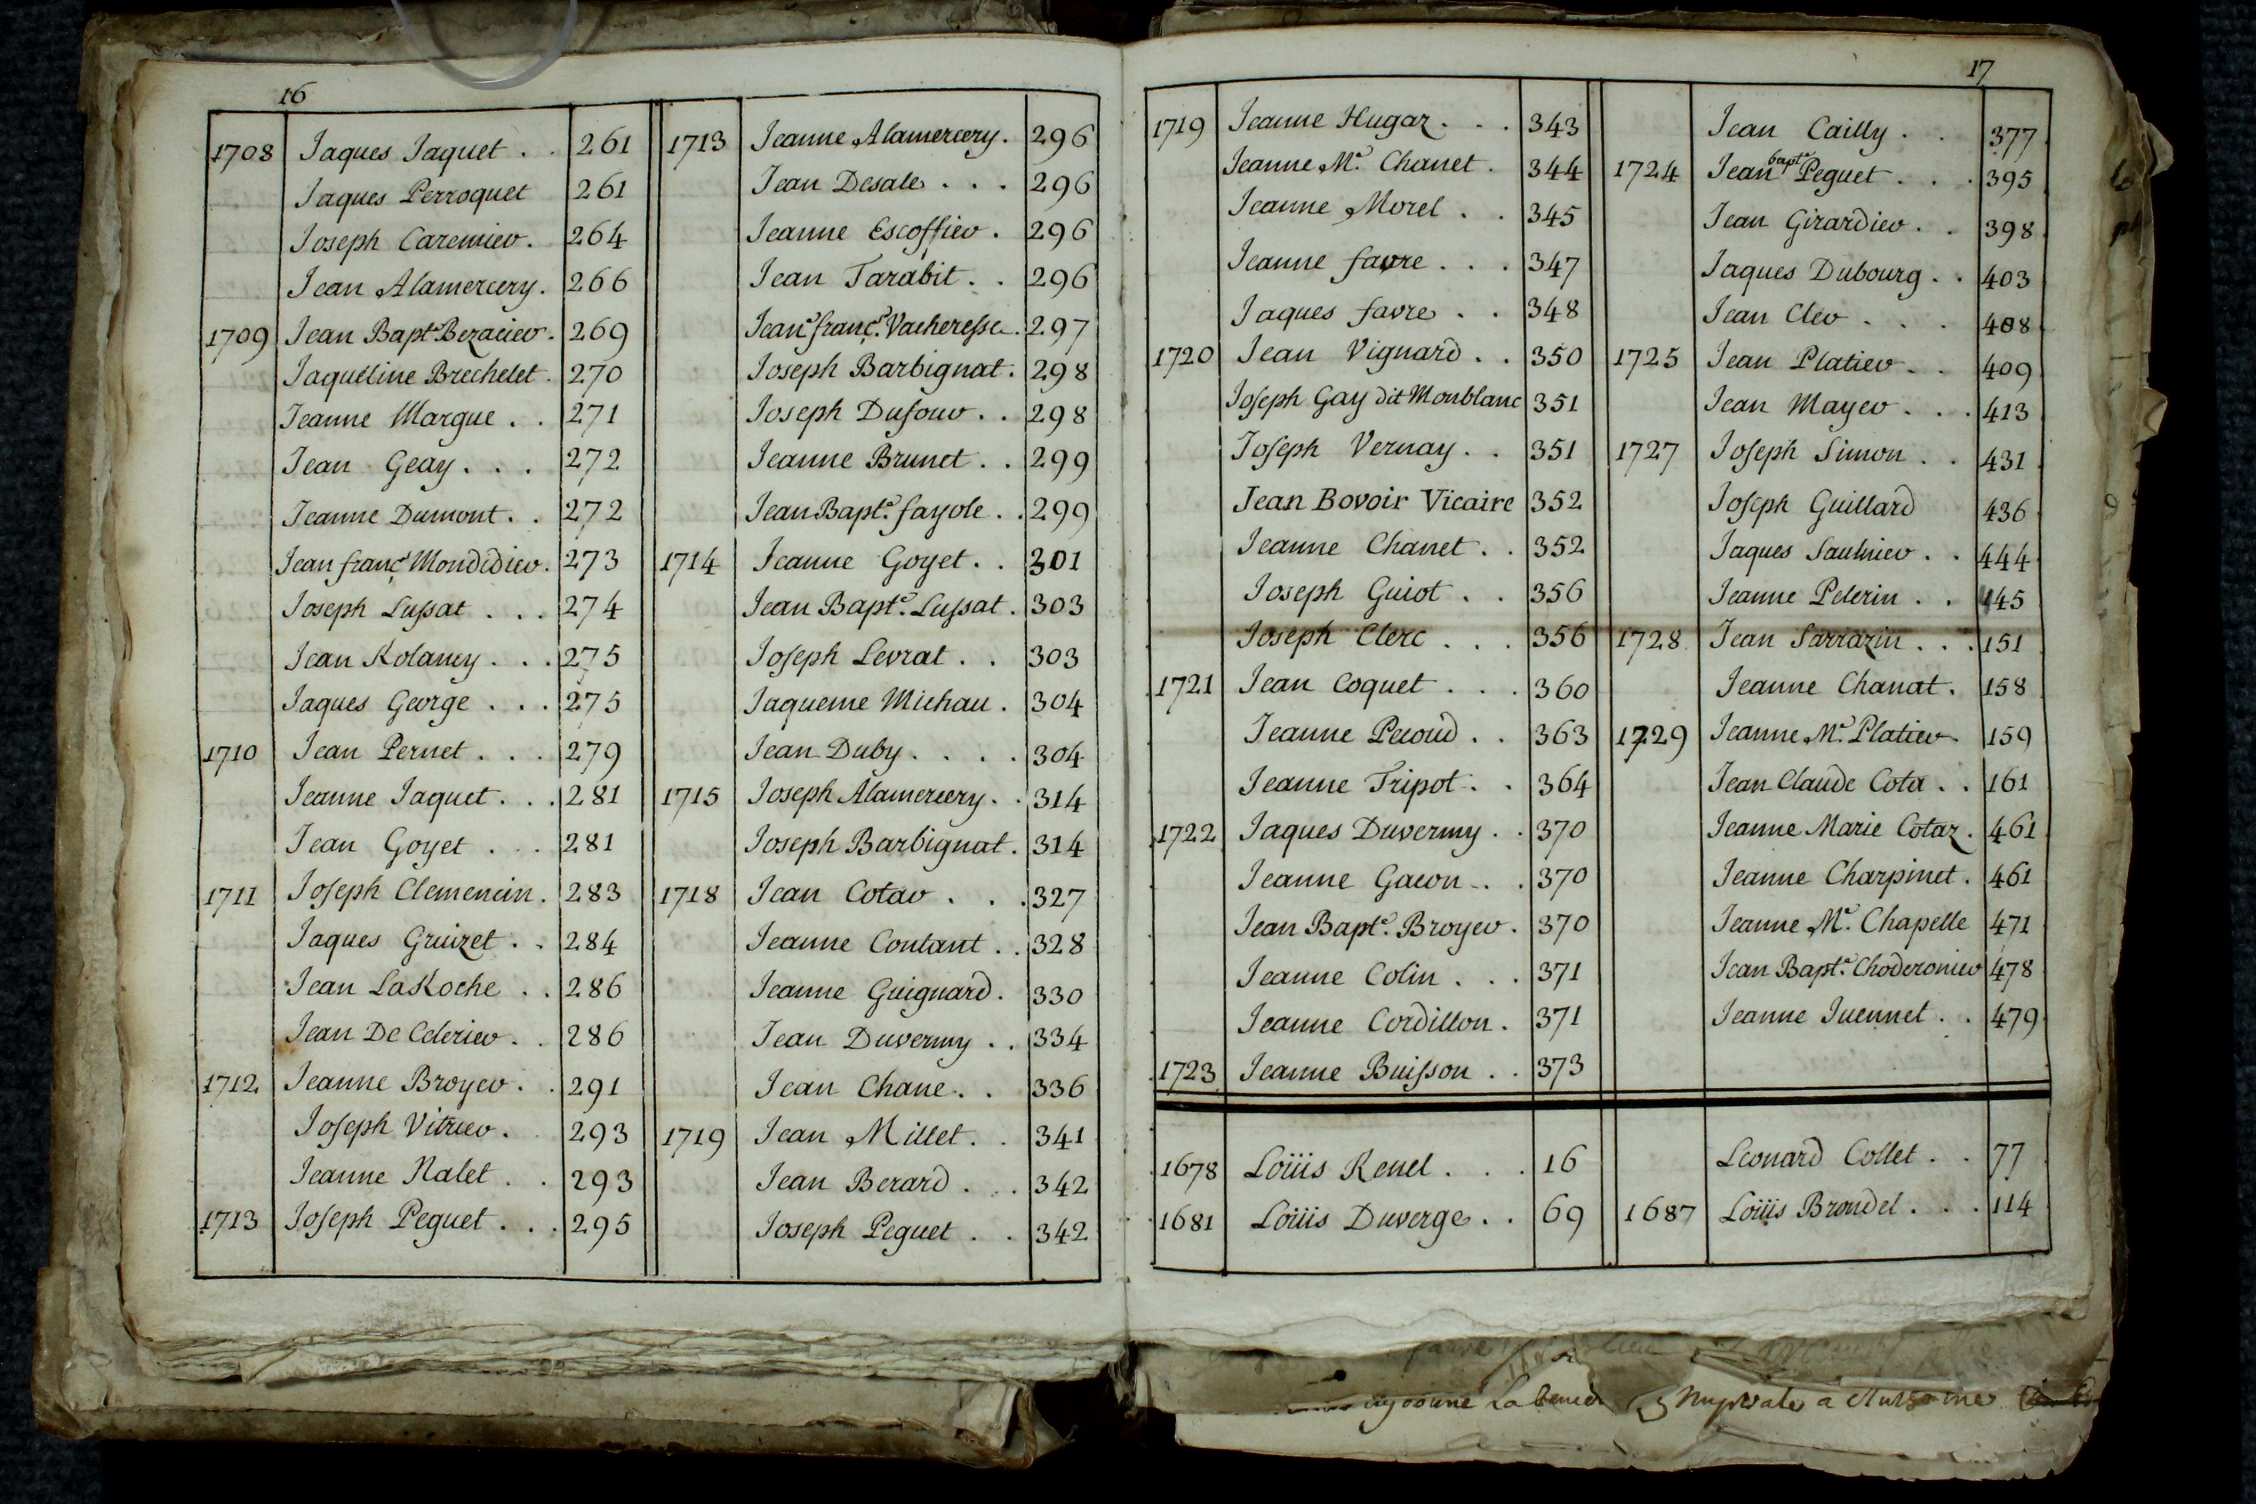 16
1708 Jaques Jaquet . . 261
Jaques Perroquet 261
Joseph Caremier . 264
Jean Alamercery . 266
1709 Jean Bapt.e Bezacier . 269
Jaqueline Brechelet . 270
Jeanne Margue . . 271
Jean Geay . . . 272
Jeanne Dumont . . 272
Jean franç.s Mondidier . 273
Joseph Lussat . . . 274
Jean Rolancy . . . 275
Jaques George . . . 275
1710 Jean Pernet . . . 279
Jeanne Jaquet . . . 281
Jean Goyet . . . 281
1711 Joseph Clemencin . 283
Jaques Gruizet . . 284
Jean LaRoche . . 286
Jean De Celerier . . 286
1712 Jeanne Broyer . . 291
Joseph Vitrier . 293
Jeanne Nalet . . 293
1713 Joseph Peguet . . . 295
1713 Jeanne Alamercery . 296
Jean Desales . . . 296
Jeanne Escoffier . 296
Jean Tarabit . . 296
Jean franç.s Vacheresse . 297
Joseph Barbignat . 298
Joseph Dufour . . 298
Jeanne Brunet . . 299
Jean Bapt.e fayole . . 299
1714 Jeanne Goyet . . 301
Jean Bapt.e Lussat . 303
Joseph Levrat . . 303
Jaqueme Michau . 304
Jean Duby . . . . 304
1715 Joseph Alamercery . . 314
Joseph Barbignat . 314
1718 Jean Cotar . . . 327
Jeanne Contant . . 328
Jeanne Guignard . 330
Jean Duvermy . . 334
Jean Chane . . 336
1719 Jean Millet . . 341
Jean Berard . . . 342
Joseph Peguet . . 342
17
1719 Jeanne Hugaz . . . 343
Jeanne M.e Chanet . 344
Jeanne Morel . . 345
Jeanne favre . . . 347
Jaques favre . . 348
1720 Jean Vignard . . 350
Joseph Gay dit Monblanc 351
Joseph Vernay . . 351
Jean Bovoir Vicaire 352
Jeanne Chanet . . 352
Joseph Guiot . . 356
Joseph Clerc . . . 356
1721 Jean Coquet . . . 360
Jeanne Pecoud . . 363
Jeanne Tripot . . 364
1722 Jaques Duvermy . . 370
Jeanne Gacon . . 370
Jean Bapt.e Broyer . 370
Jeanne Colin . . . 371
Jeanne Cordillon . 371
1723 Jeanne Buisson . . 373
Jean Cailly . . 377
1724 Jean bapt.e Peguet . . . 395
Jean Girardier . . 398
Jaques Dubourg . . 403
Jean Cler . . . 408
1725 Jean Platier . . 409
Jean Mayer . . . 413
1727 Joseph Simon . . 431
Joseph Guillard 436
Jaques Saulnier . . 444
Jeanne Pelerin . . 445
1728 Jean Sarrazin . . . 151
Jeanne Chanat . 158
1729 Jeanne M.e Platier . 159
Jean Claude Cota . . 161
Jeanne Marie Cotaz . 461
Jeanne Charpinet . 461
Jeanne M.e Chapelle 471
Jean Bapt.e Choderonier 478
Jeanne Juennet . . 479
1678 Loüis Renel . . . 16
1681 Loüis Duverge . . 69
Leonard Collet . . 77
1687 Loüis Brondel . . . 114